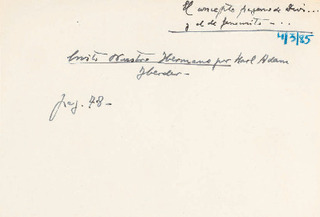 El concepto pagano de Divi...
y el de Jesucristo - ...
4/3/85
Cristo Nuestro Hermano por Karl Adam
Herder -
pag. 48 -